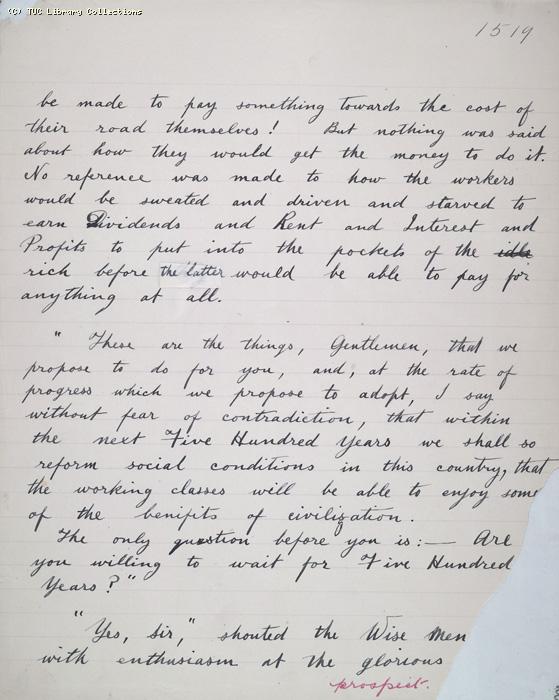 (C) TUC Library Collections
1519
be made to pay something towards the cost of
their road themselves! But nothing was said
about how they would get the money to do it.
No reference was made to how the workers
would be sweated and driven and starved to
earn Dividends and Rent and Interest and
Profits to put into the pockets of the idle
rich before the latter would be able to pay for
anything at all.
" These are the things, Gentlemen, that we
propose to do for you, and, at the rate of
progress which we propose to adopt, I say
without fear of contradiction, that within
the next Five Hundred Years we shall so
reform social conditions in this country, that
the working classes will be able to enjoy some
of the benifits of civilization.
The only question before you is:— Are
you willing to wait for Five Hundred
Years?"
"Yes, sir," shouted the Wise men
with enthusiasm at the glorious
prospect.